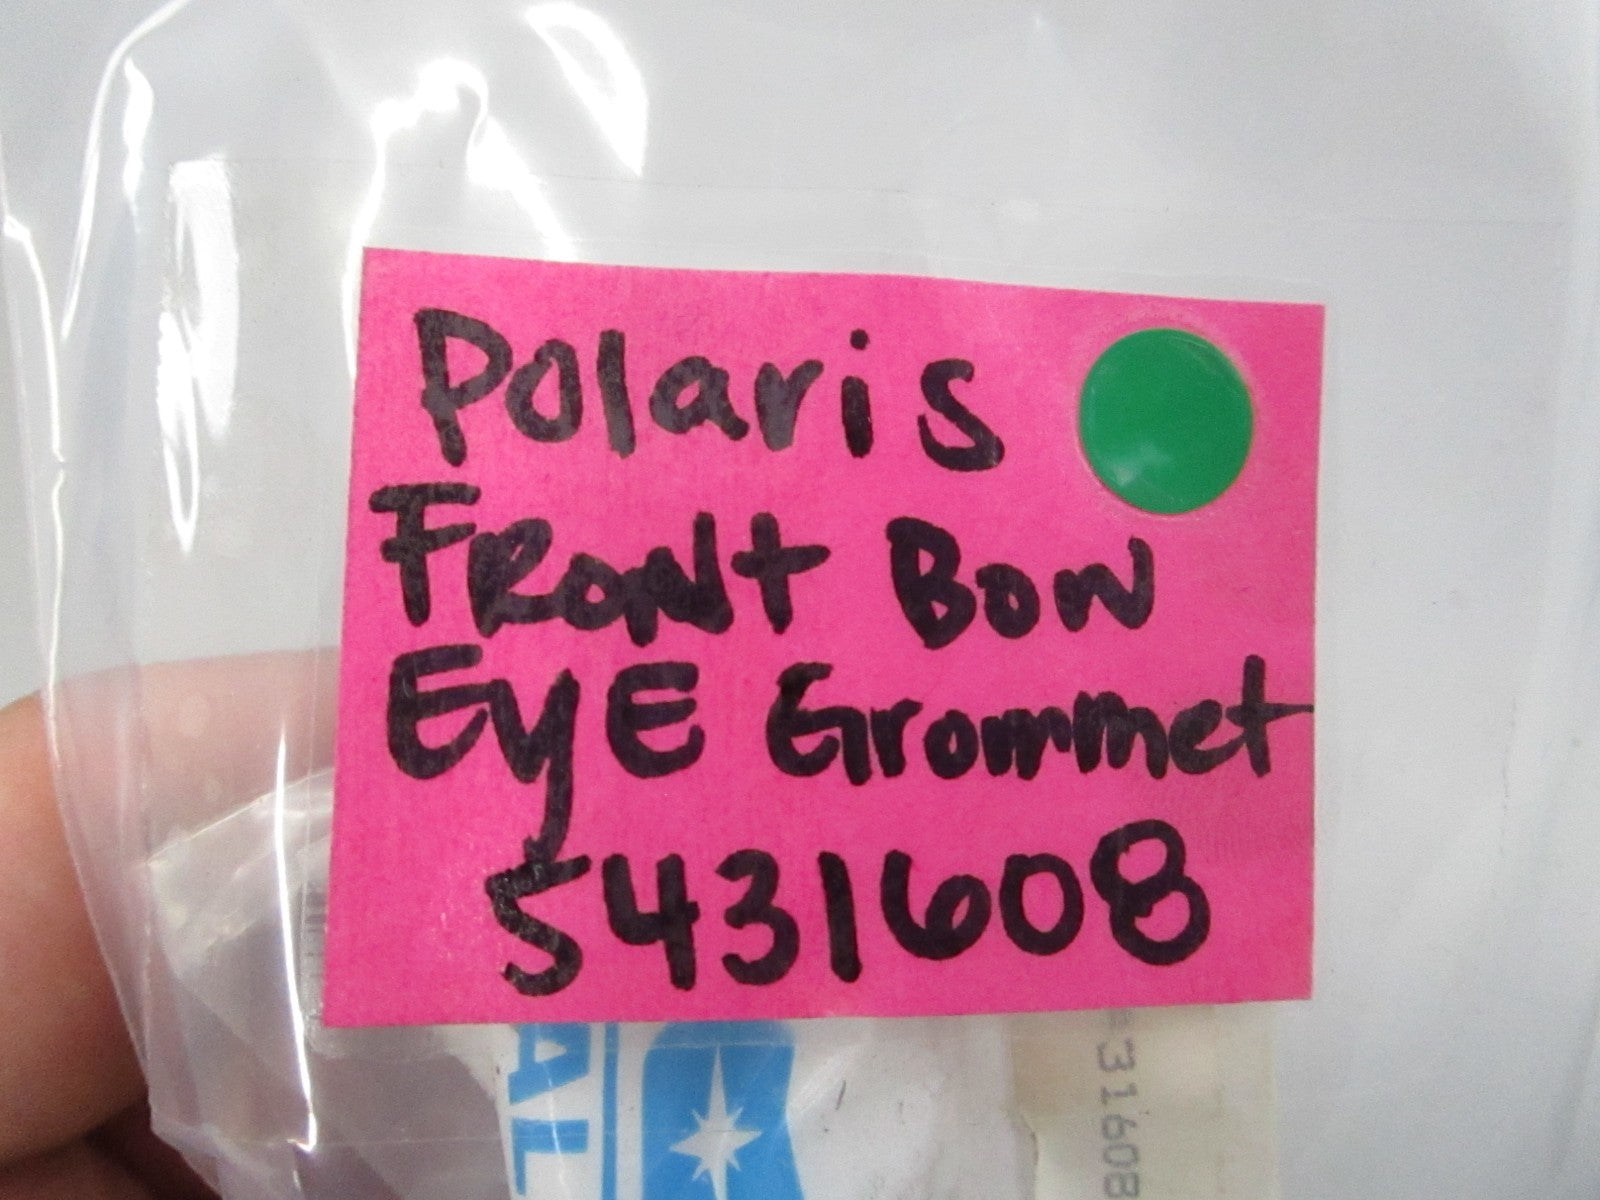 Polaris
FRONt Bow
EyE Grommet
5431608
AL
31608